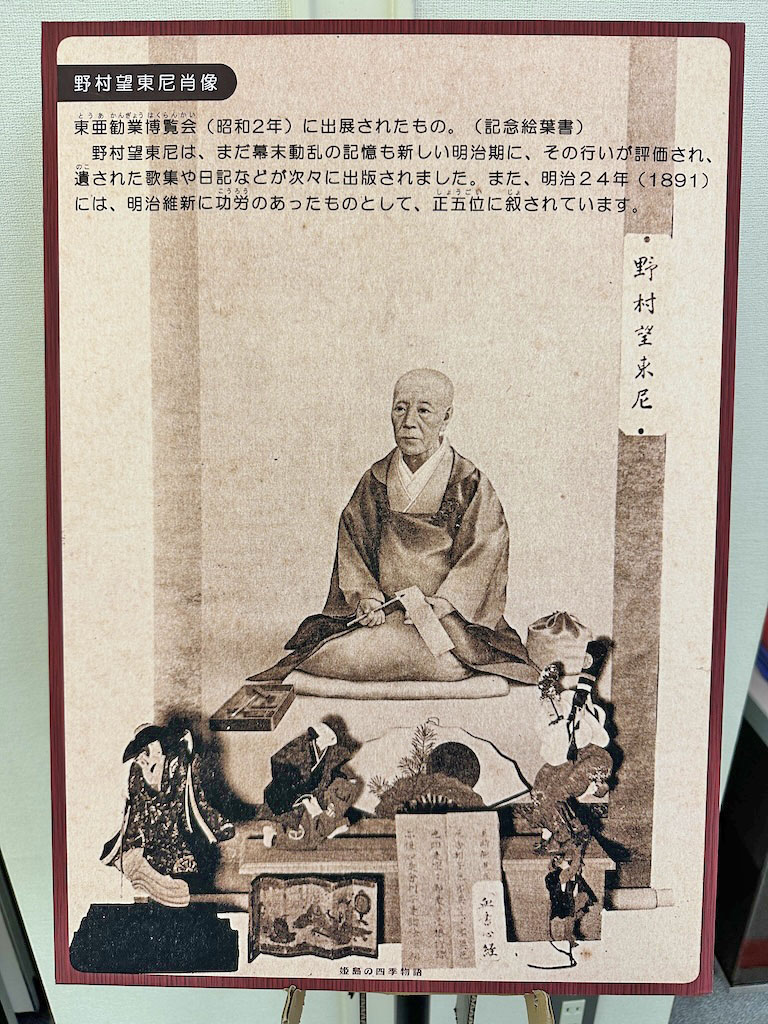 野村望東尼肖像
東亜勧業博覧会（昭和2年）に出展されたもの。（記念絵葉書）
野村望東尼は、まだ幕末動乱の記憶も新しい明治期に、その行いが評価され、
遺された歌集や日記などが次々に出版されました。また、明治２４年（1891）
には、明治維新に功労のあったものとして、正五位に叙されています。
野村望東尼
血書心経
姫島の四季物語